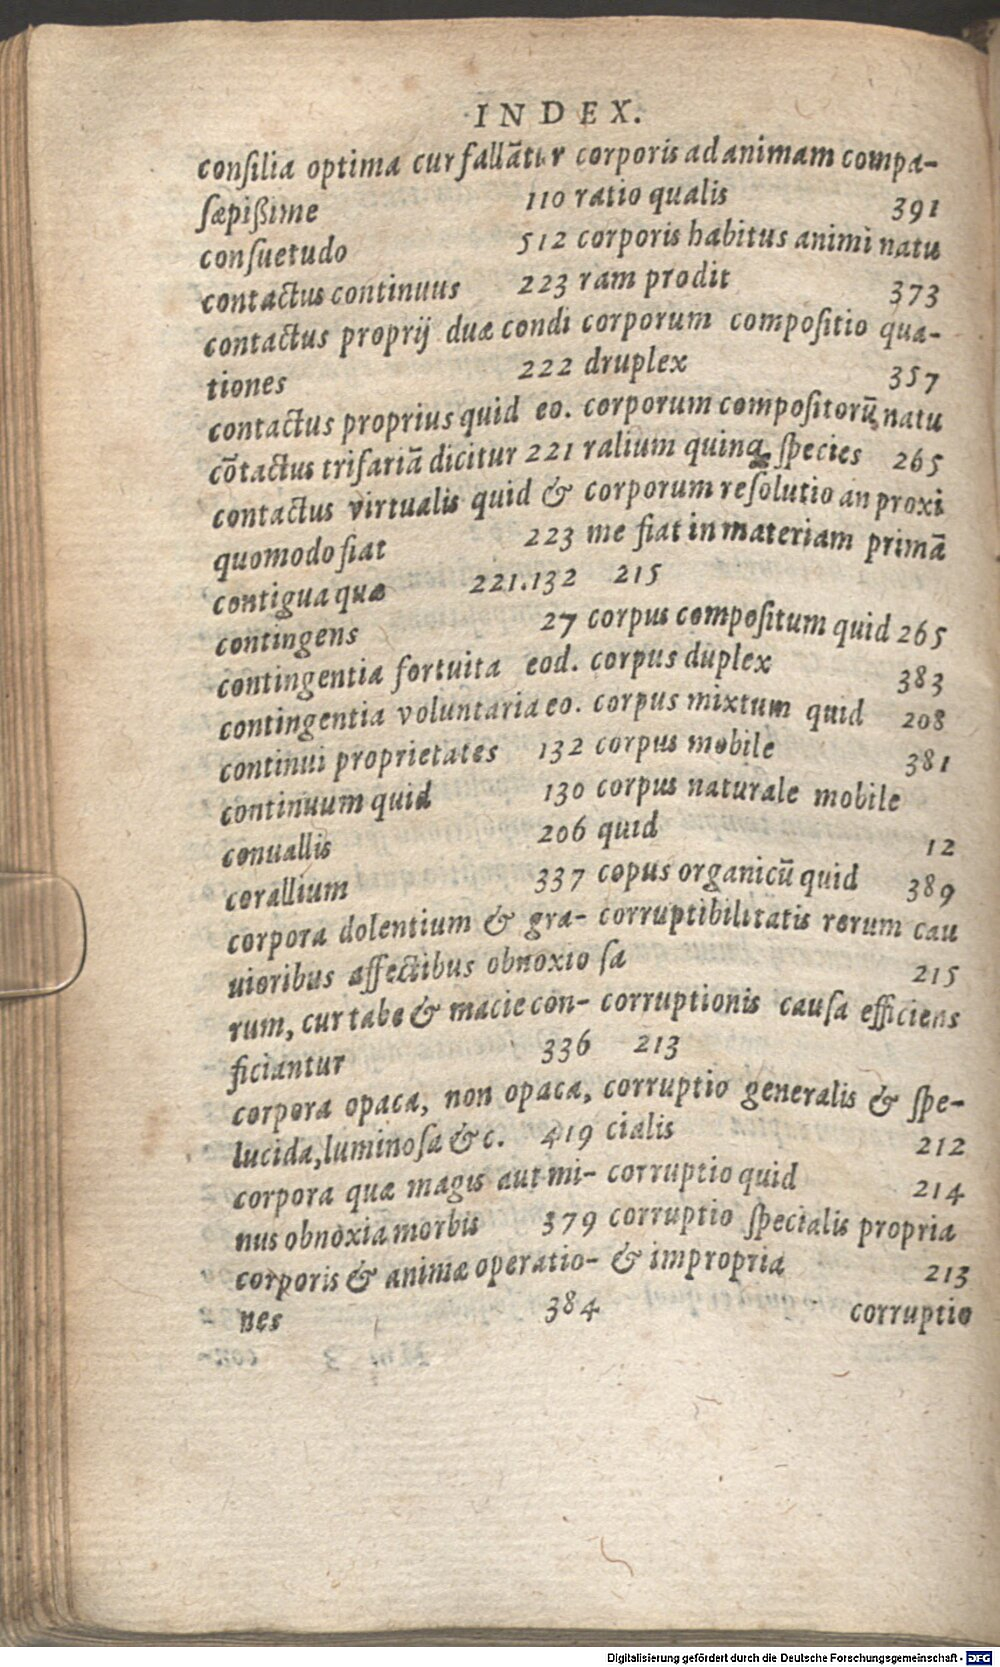 INDEX.
conſilia optima cur fallãtur
ſæpißime 110
conſuetudo 512
contactus continuus 223
contactus proprij duæ condi
tiones 222
contactus proprius quid eo.
cõtactus trifariã dicitur 221
contactus virtualis quid &
quomodo fiat 223
contigua quæ 221.132
contingens 27
contingentia fortuita eod.
contingentia voluntaria eo.
continui proprietates 132
continuum quid 130
conuallis 206
corallium 337
corpora dolentium & gra-
uioribus affectibus obnoxio
rum, cur tabe & macie con-
ficiantur 336
corpora opaca, non opaca,
lucida, luminoſa &c. 419
corpora quæ magis aut mi-
nus obnoxia morbis 379
corporis & animæ operatio-
nes 384
corporis ad animam compa-
ratio qualis 391
corporis habitus animi natu
ram prodit 373
corporum compoſitio qua-
druplex 357
corporum compoſitorũ natu
ralium quinq; ſpecies 265
corporum reſolutio an proxi
me fiat in materiam primã
215
corpus compoſitum quid 265
corpus duplex 383
corpus mixtum quid 208
corpus mobile 381
corpus naturale mobile
quid 12
copus organicũ quid 389
corruptibilitatis rerum cau
ſa 215
corruptionis cauſa efficiens
213
corruptio generalis & ſpe-
cialis 212
corruptio quid 214
corruptio ſpecialis propria
& impropria 213
corruptio
Digitalisierung gefördert durch die Deutsche Forschungsgemeinschaft - DFG